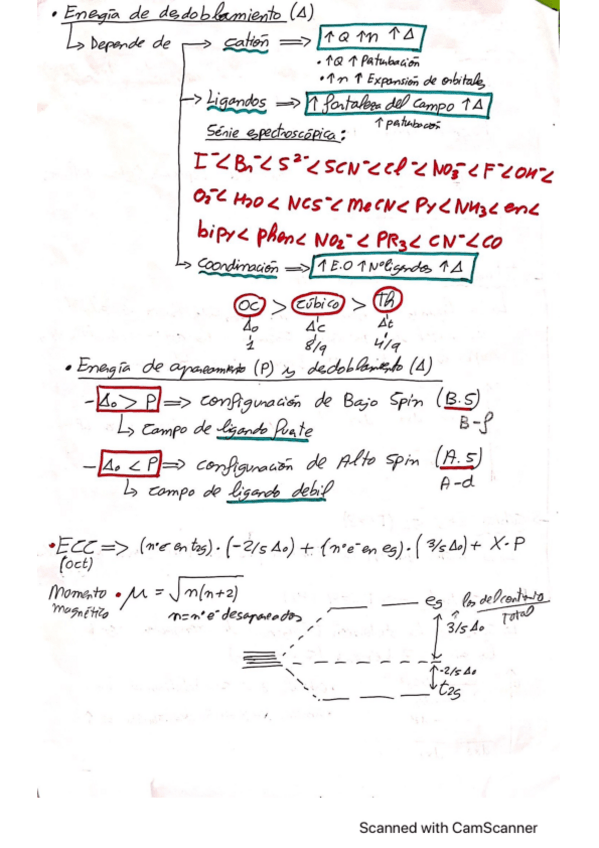 • Energía de desdoblamiento (Δ)
↳ Depende de → catión ⇒ ↑Q ↑n ↑Δ
• ↑Q ↑ Patubación
• ↑n ↑ Expansión de orbitales
→ Ligandos ⇒ ↑ fortaleza del campo ↑Δ
↑ patubación
Série espectroscópica:
I⁻ < Br⁻ < S²⁻ < SCN⁻ < Cl⁻ < NO₃⁻ < F⁻ < OH⁻ <
O₂⁻ < H₂O < NCS⁻ < MeCN < Py < NH₃ < en <
bipy < phen < NO₂⁻ < PR₃ < CN⁻ < CO
↳ Coordinación ⇒ ↑E.O ↑Nº ligandos ↑Δ
OC > cúbico > Th
Δo Δc Δt
1 8/9 4/9
• Energía de apareamiento (P) y dedoblamiento (Δ)
- Δo > P ⇒ configuración de Bajo Spin (B.S)
B-f
↳ Campo de ligando fuete
- Δo < P ⇒ configuración de Alto spin (A.S)
A-d
↳ campo de ligando debil
• ECC ⇒ (nºe⁻ en t2g)·(-2/5 Δo) + (nºe⁻ en eg)·(3/5 Δo) + X·P
(oct)
Momento magnético • μ = √n(n+2)
n = nº e⁻ desapareados
eg
los del contrario
Total
3/5 Δo
-2/5 Δo
t2g
Scanned with CamScanner